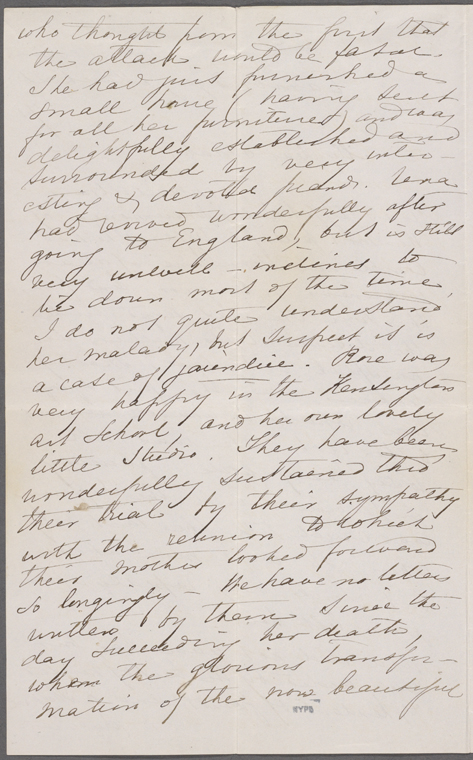 who thought from the first that
the attack would be fatal.
She had just furnished a
small house (having sent
for all her furniture) and was
delightfully established and
surrounded by very inter-
esting & devoted friends. Lena
had revived wonderfully after
going to England, but is still
very unwell - inclines to
lie down most of the time
I do not quite understand
her malady, but suspect it is
a case of jaundice. Rose was
very happy in the Kensington
art School, and her own lovely
little Studio. They have been
wonderfully sustained thro'
their trial by their sympathy
with the reunion to which
their mother looked forward
so longingly - We have no letters
written by them since the
day succeeding her death,
when the glorious transfor-
mation of the now beautiful
NYPL